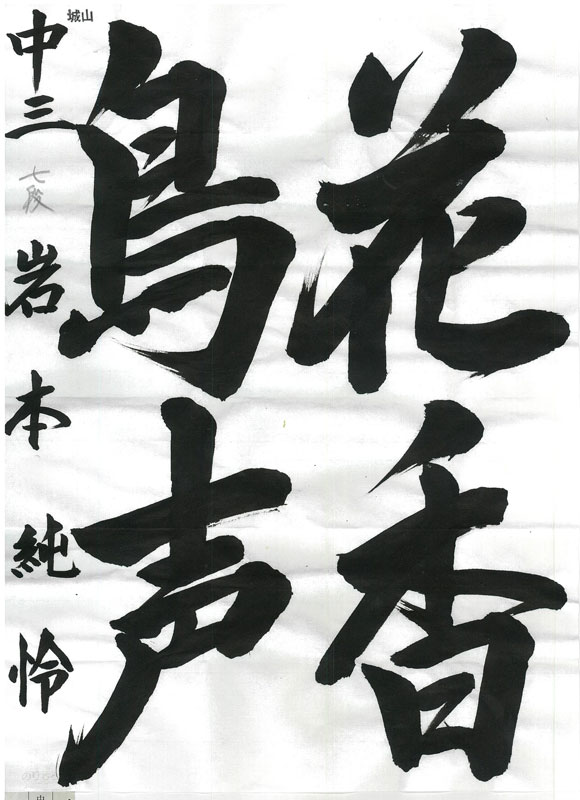 花香
鳥声
城山
中三 七段 岩本純怜